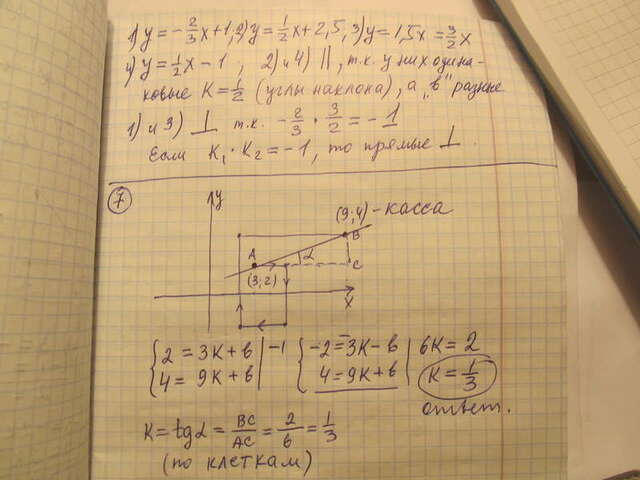 1) y = -2/3x+1, 2) y = 1/2x+2,5, 3) y = 1,5x = 3/2x
4) y = 1/2x - 1 , 2) и 4) || , т.к. у них одина-
ковые K = 1/2 (углы наклона), а „в" разные
1) и 3) ⊥ т.к. -2/3 · 3/2 = -1
Если K₁ · K₂ = -1, то прямые ⊥.
7
y
(9; 4) - касса
B
A
α
C
(3; 2)
x
{ 2 = 3K+в | -1 { -2 = -3K-в | 6K = 2
4 = 9K+в 4 = 9K+в K = 1/3
ответ.
K = tgα = BC/AC = 2/6 = 1/3
(по клеткам)